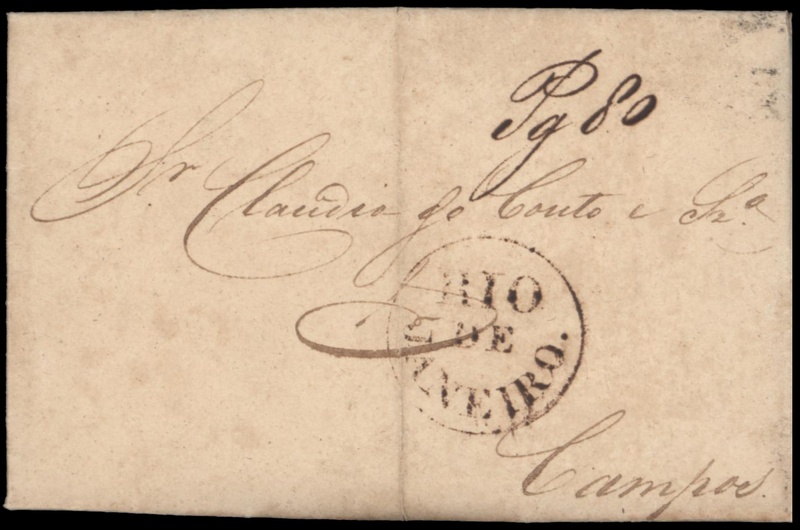 Pg 80
Sr Claudio do Couto e Sza
RIO
DE
JANEIRO.
Campos.